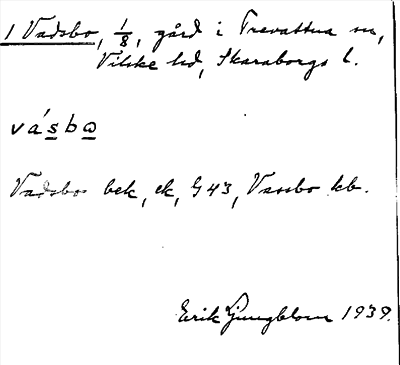 1 Vadsbo, 1/8, gård i Trevattna sn,
Vilske hd, Skaraborgs l.
vásbω
Vadsbo bek, ek, G 43, Vassbo kb.
Erik Ljungblom 1939.